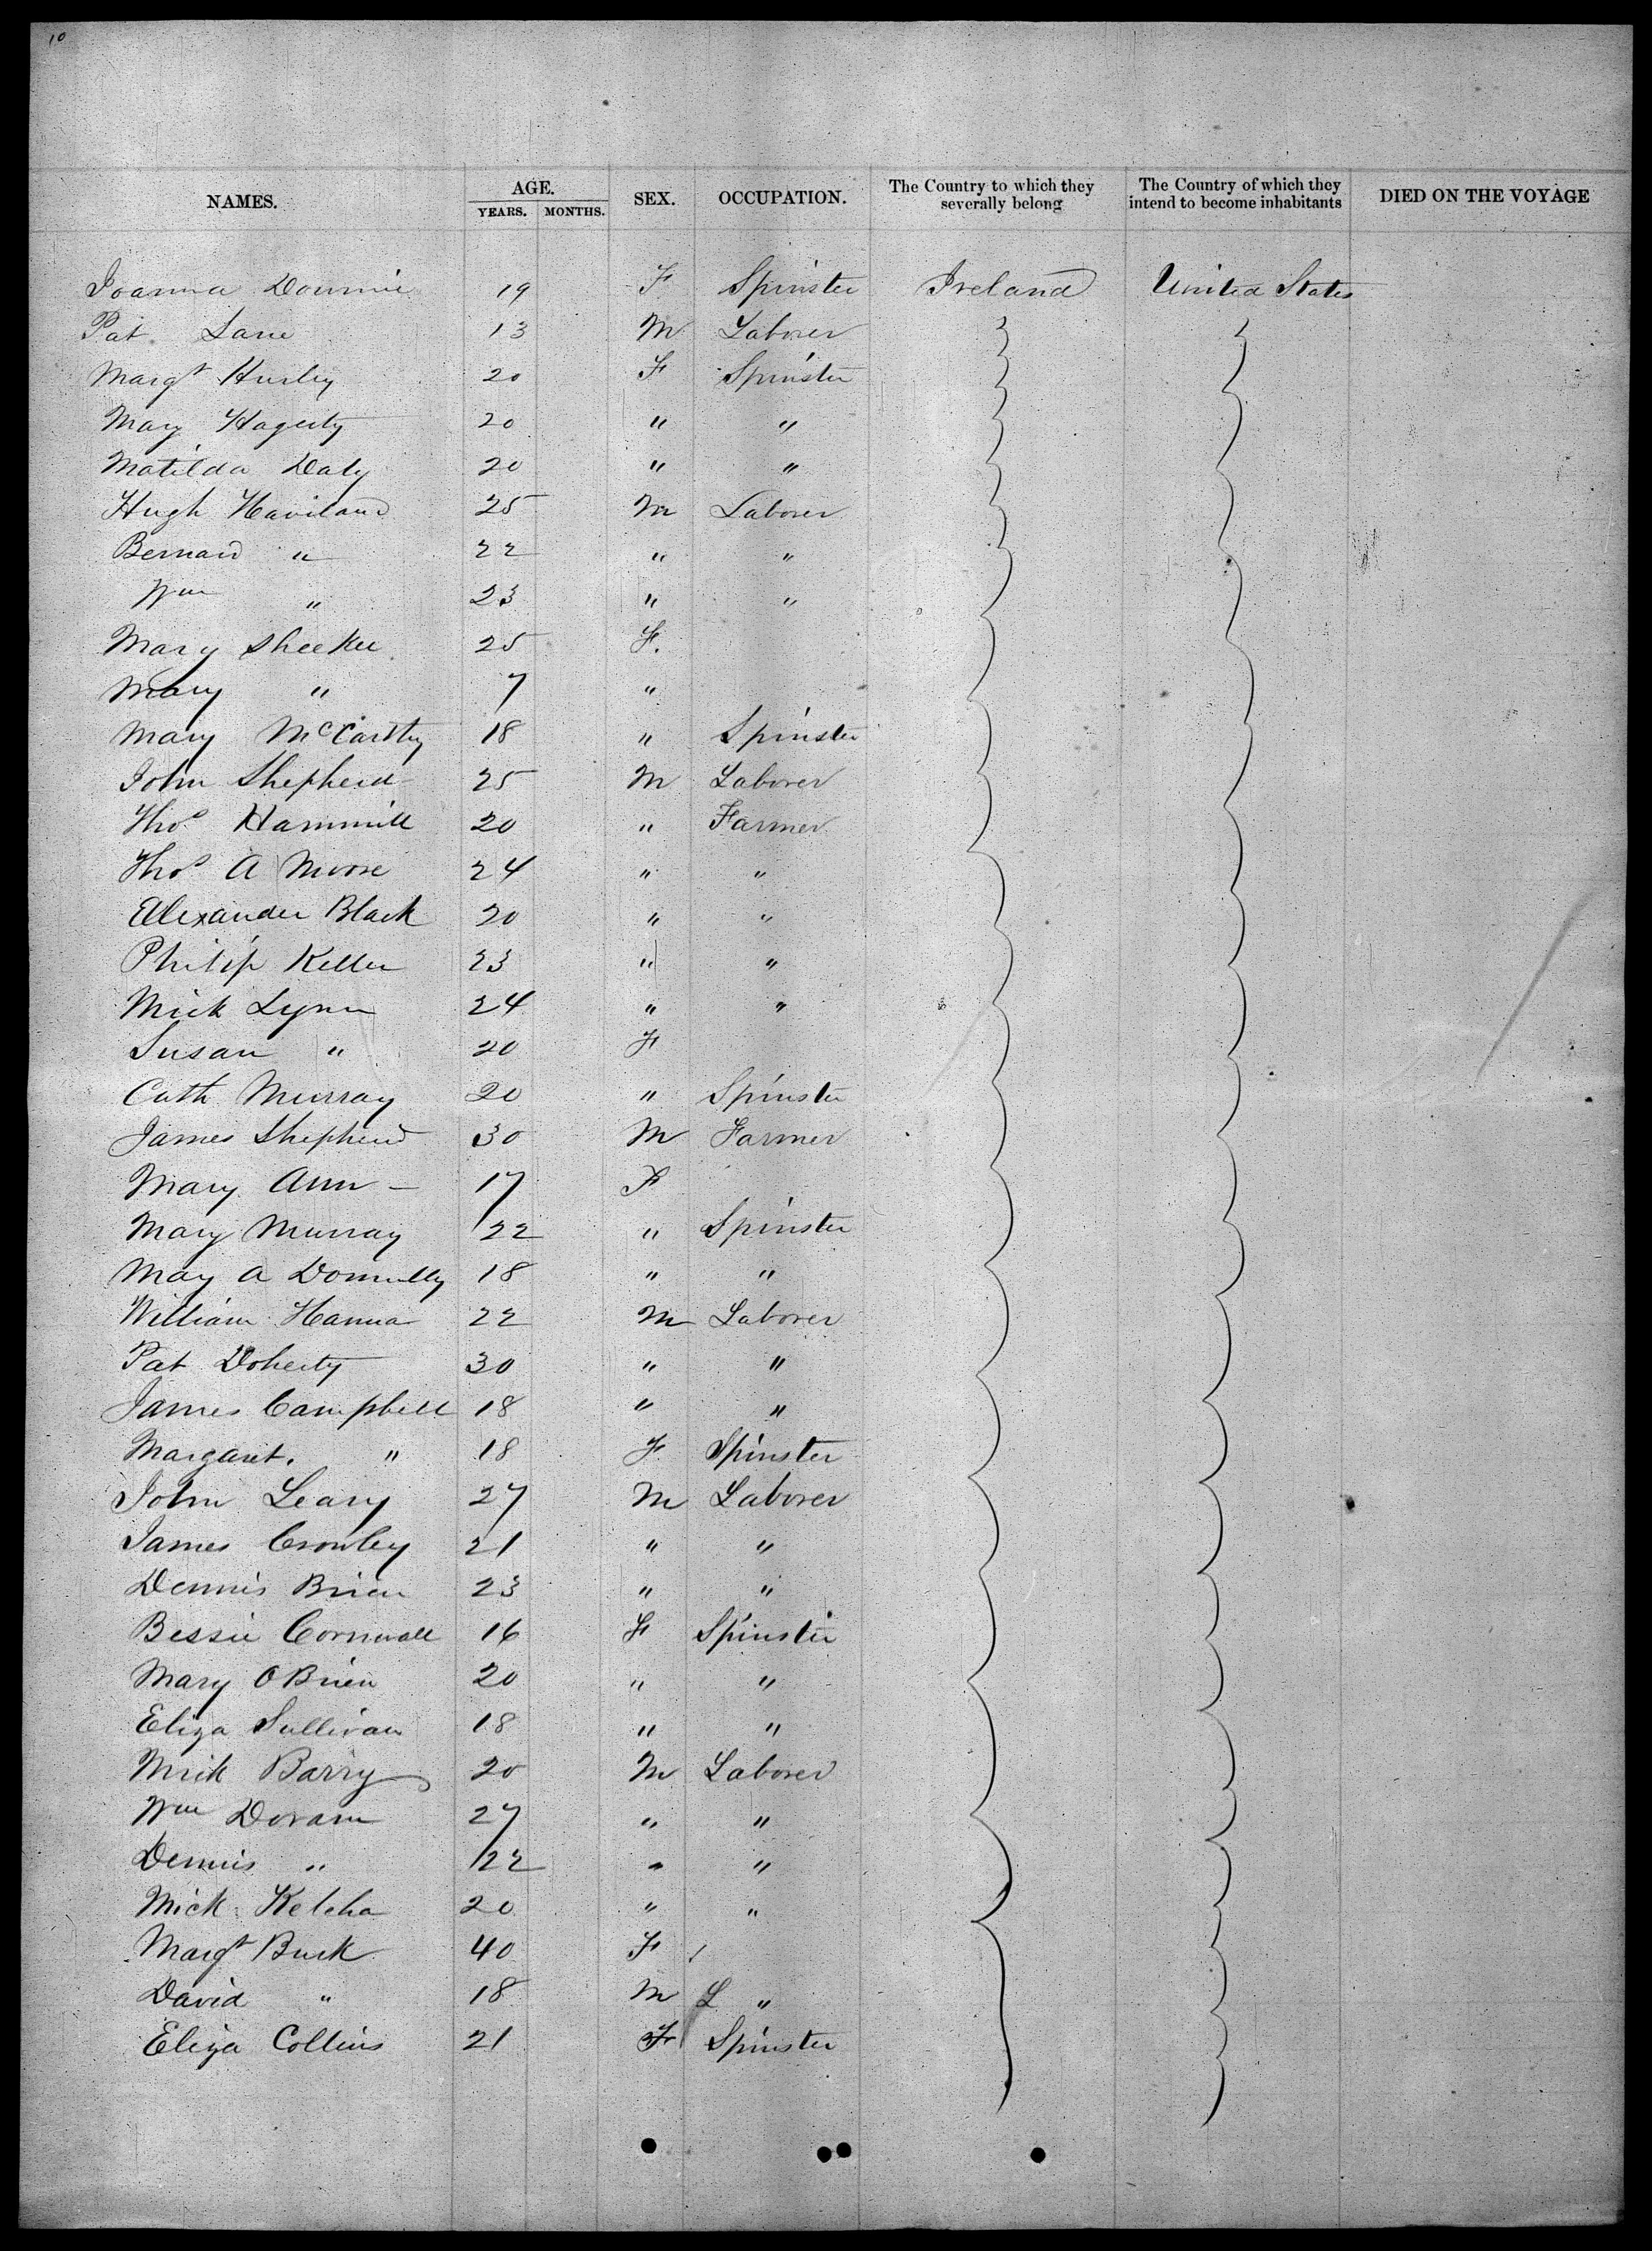 10
NAMES. AGE. SEX. OCCUPATION. The Country to which they severally belong The Country of which they intend to become inhabitants DIED ON THE VOYAGE
YEARS. MONTHS.
Joanna 19 F Spinster Ireland United States
Pat Lane 13 M Laborer
Margt Hurley 20 F Spinster
Mary Hagerty 20 " "
Matilda Daly 20 " "
Hugh Haviland 25 M Laborer
Bernard " 22 " "
Wm " 23 " "
Mary Sheekee 25 F.
Mary " 7 "
Mary McCarthy 18 " Spinster
John Shepherd 25 M Laborer
Thos Hammill 20 " Farmer
Thos A Moore 24 " "
Alexander Black 20 " "
Philip Keller 23 " "
Mick Lynn 24 " "
Susan " 20 F
Cath Murray 20 " Spinster
James Shepherd 30 M Farmer
Mary Ann – 17 F
Mary Murray 22 " Spinster
May A Donnelly 18 " "
William Hanna 22 M Laborer
Pat Doherty 30 " "
James Campbell 18 " "
Margaret. " 18 F Spinster
John Leary 27 M Laborer
James Crowley 21 " "
Dennis Brien 23 " "
Bessie Cornwall 16 F Spinster
Mary O Brien 20 " "
Eliza Sullivan 18 " "
Mick Barry 20 M Laborer
Wm Doran 27 " "
Dennis " 22 " "
Mick Keleha 20 " "
Margt Burk 40 F
David " 18 M L "
Eliza Collins 21 F Spinster